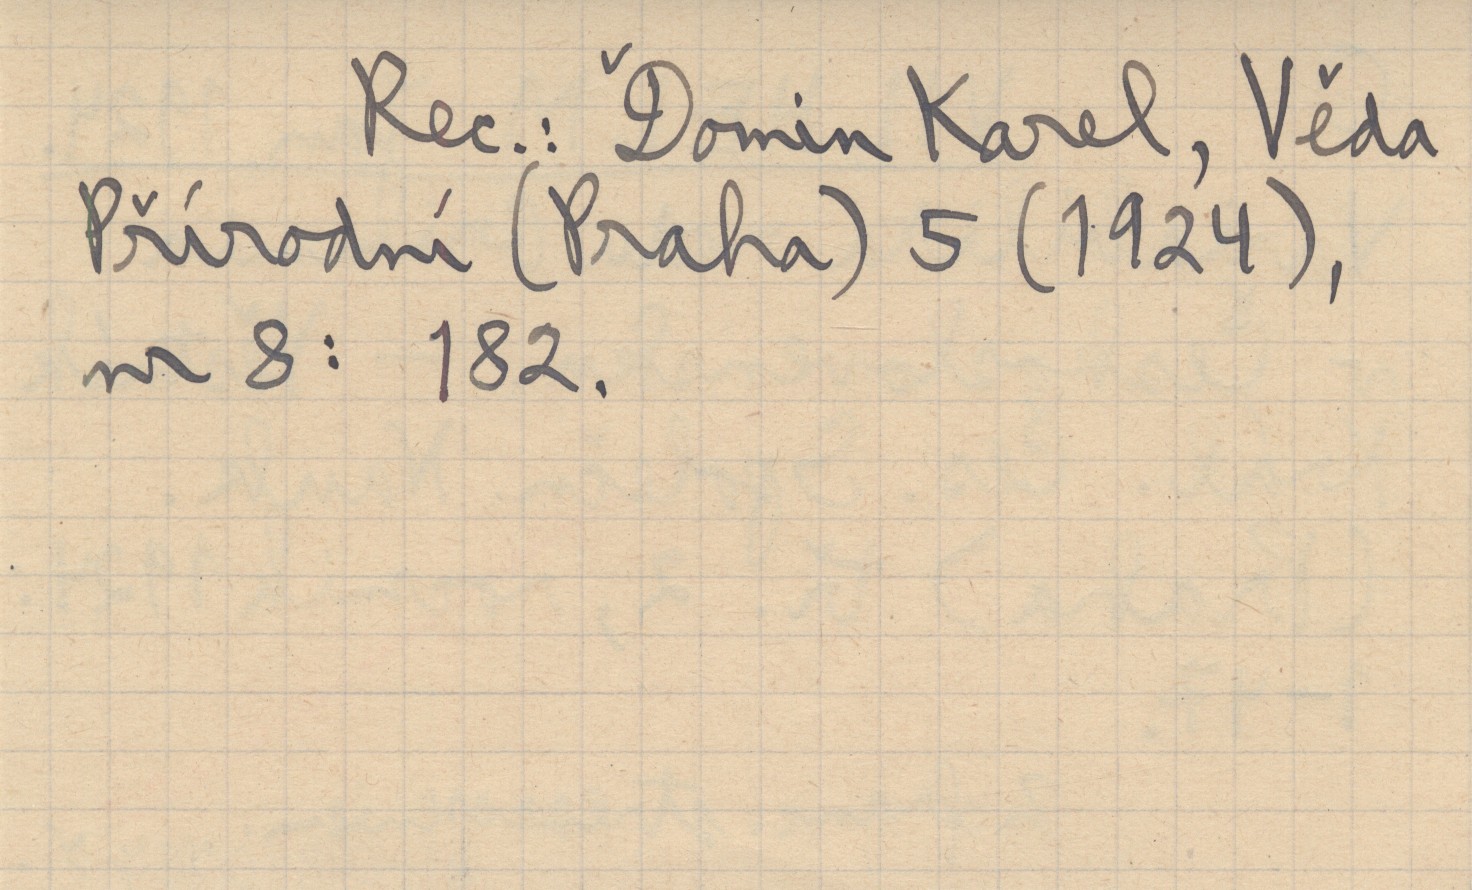 Rec.: Ďomin Karel, Věda
Přírodní (Praha) 5 (1924),
nr 8: 182.